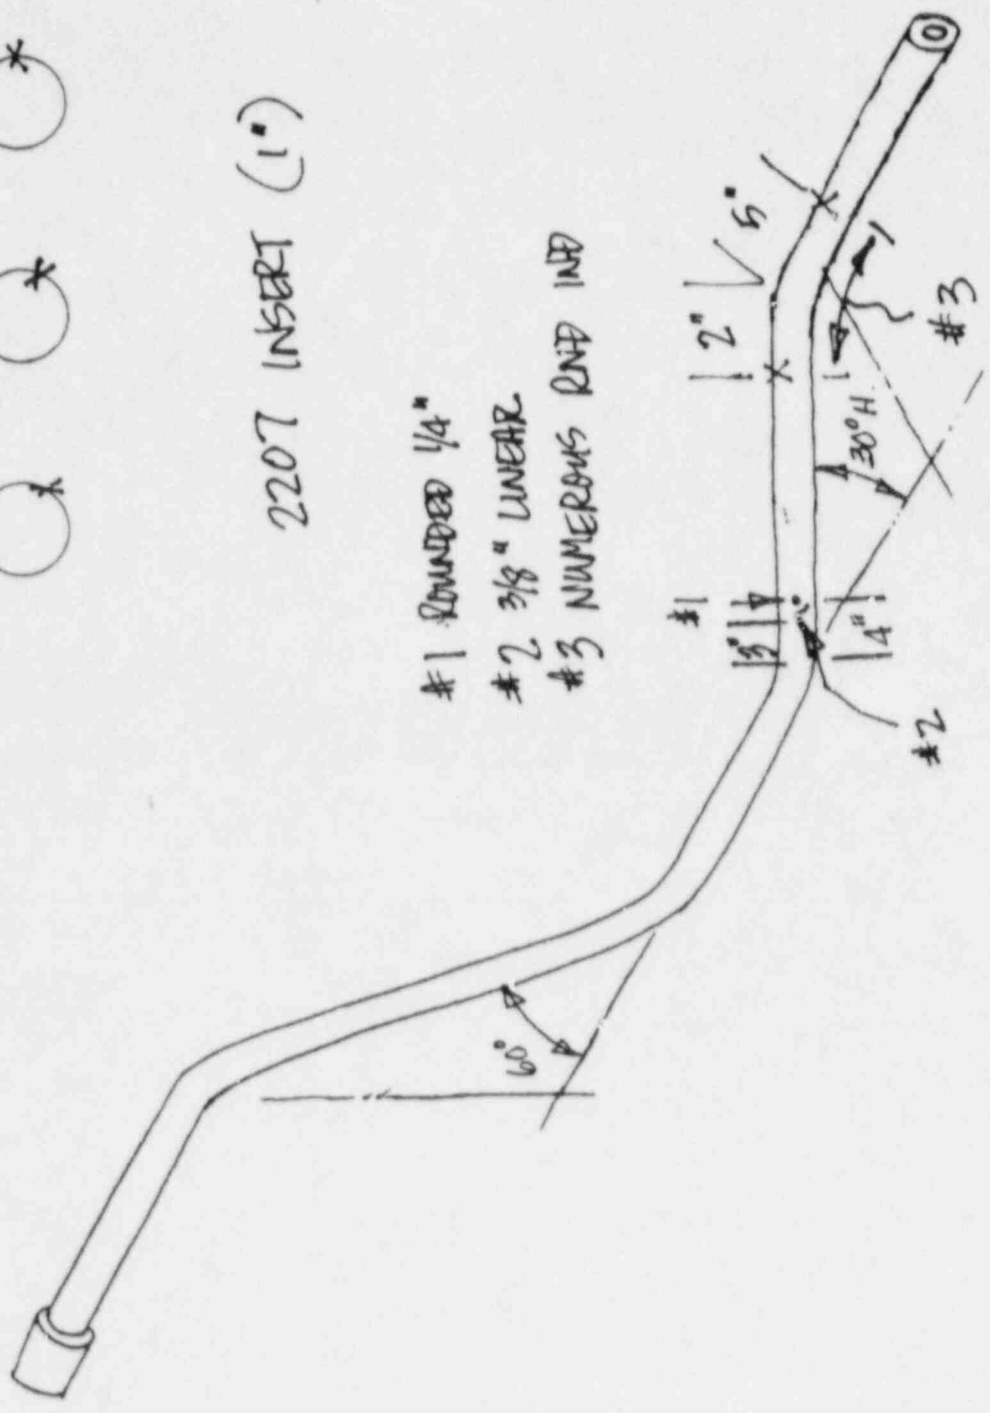 2207 INSERT (1")
#1 ROUNDED 1/4"
#2 3/8" LINEAR
#3 NUMEROUS RND IND
60°
#1
3"
4"
#2
2"
5"
30°H.
#3